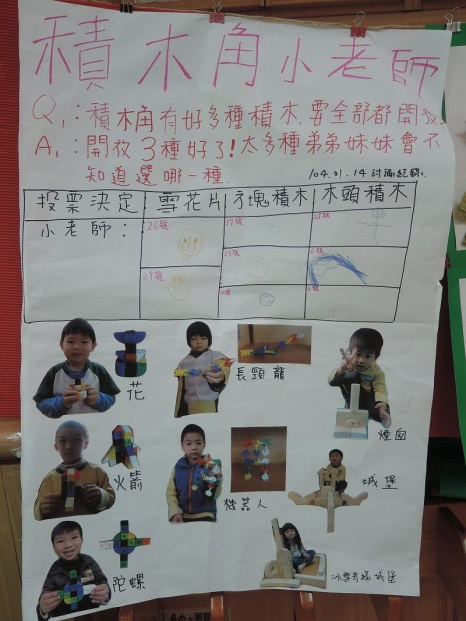 積木角小老師
Q1:積木角有好多種積木,要全部都開放?
A1:開放3種好了!太多種弟弟妹妹會不
知道選哪一種.
104.01.14討論紀錄.
投票決定 雪花片 方塊積木 木頭積木
小老師:
26號 17號
29號
花
長頸龍
煙囪
火箭
機器人
城堡
陀螺
冰雪奇緣城堡